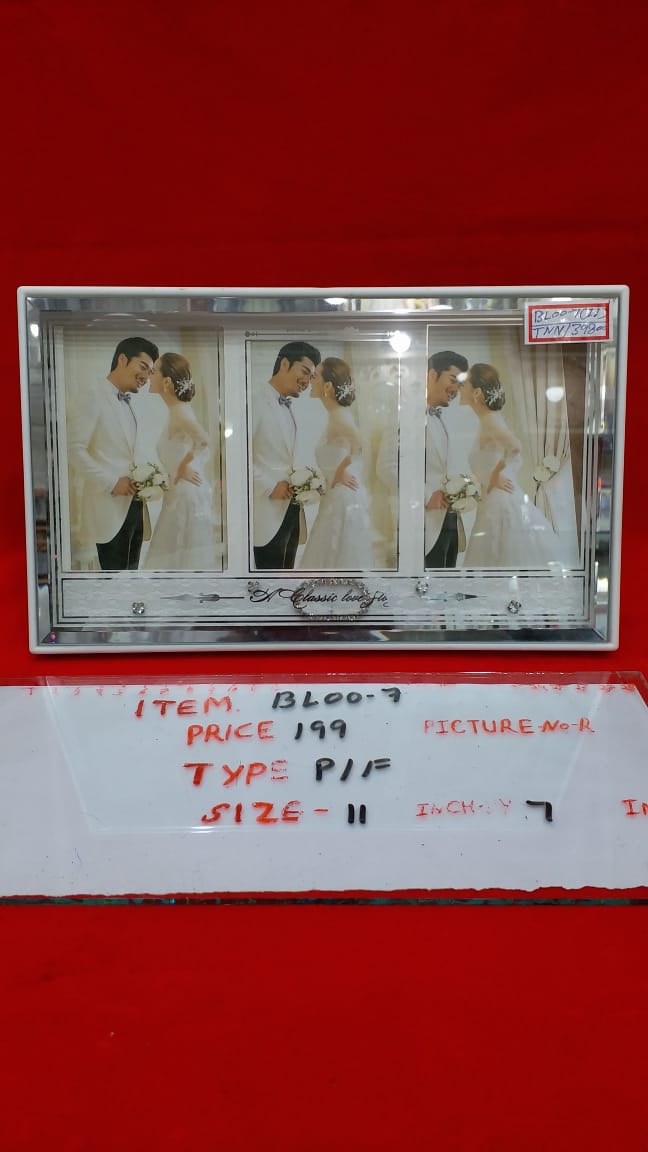 BL00-7(11)
TNN13980
A Classic love Sto
ITEM. BL00-7
PRICE 199 PICTURE-NO-R
TYPE P/F
SIZE - 11 INCH 7 IN